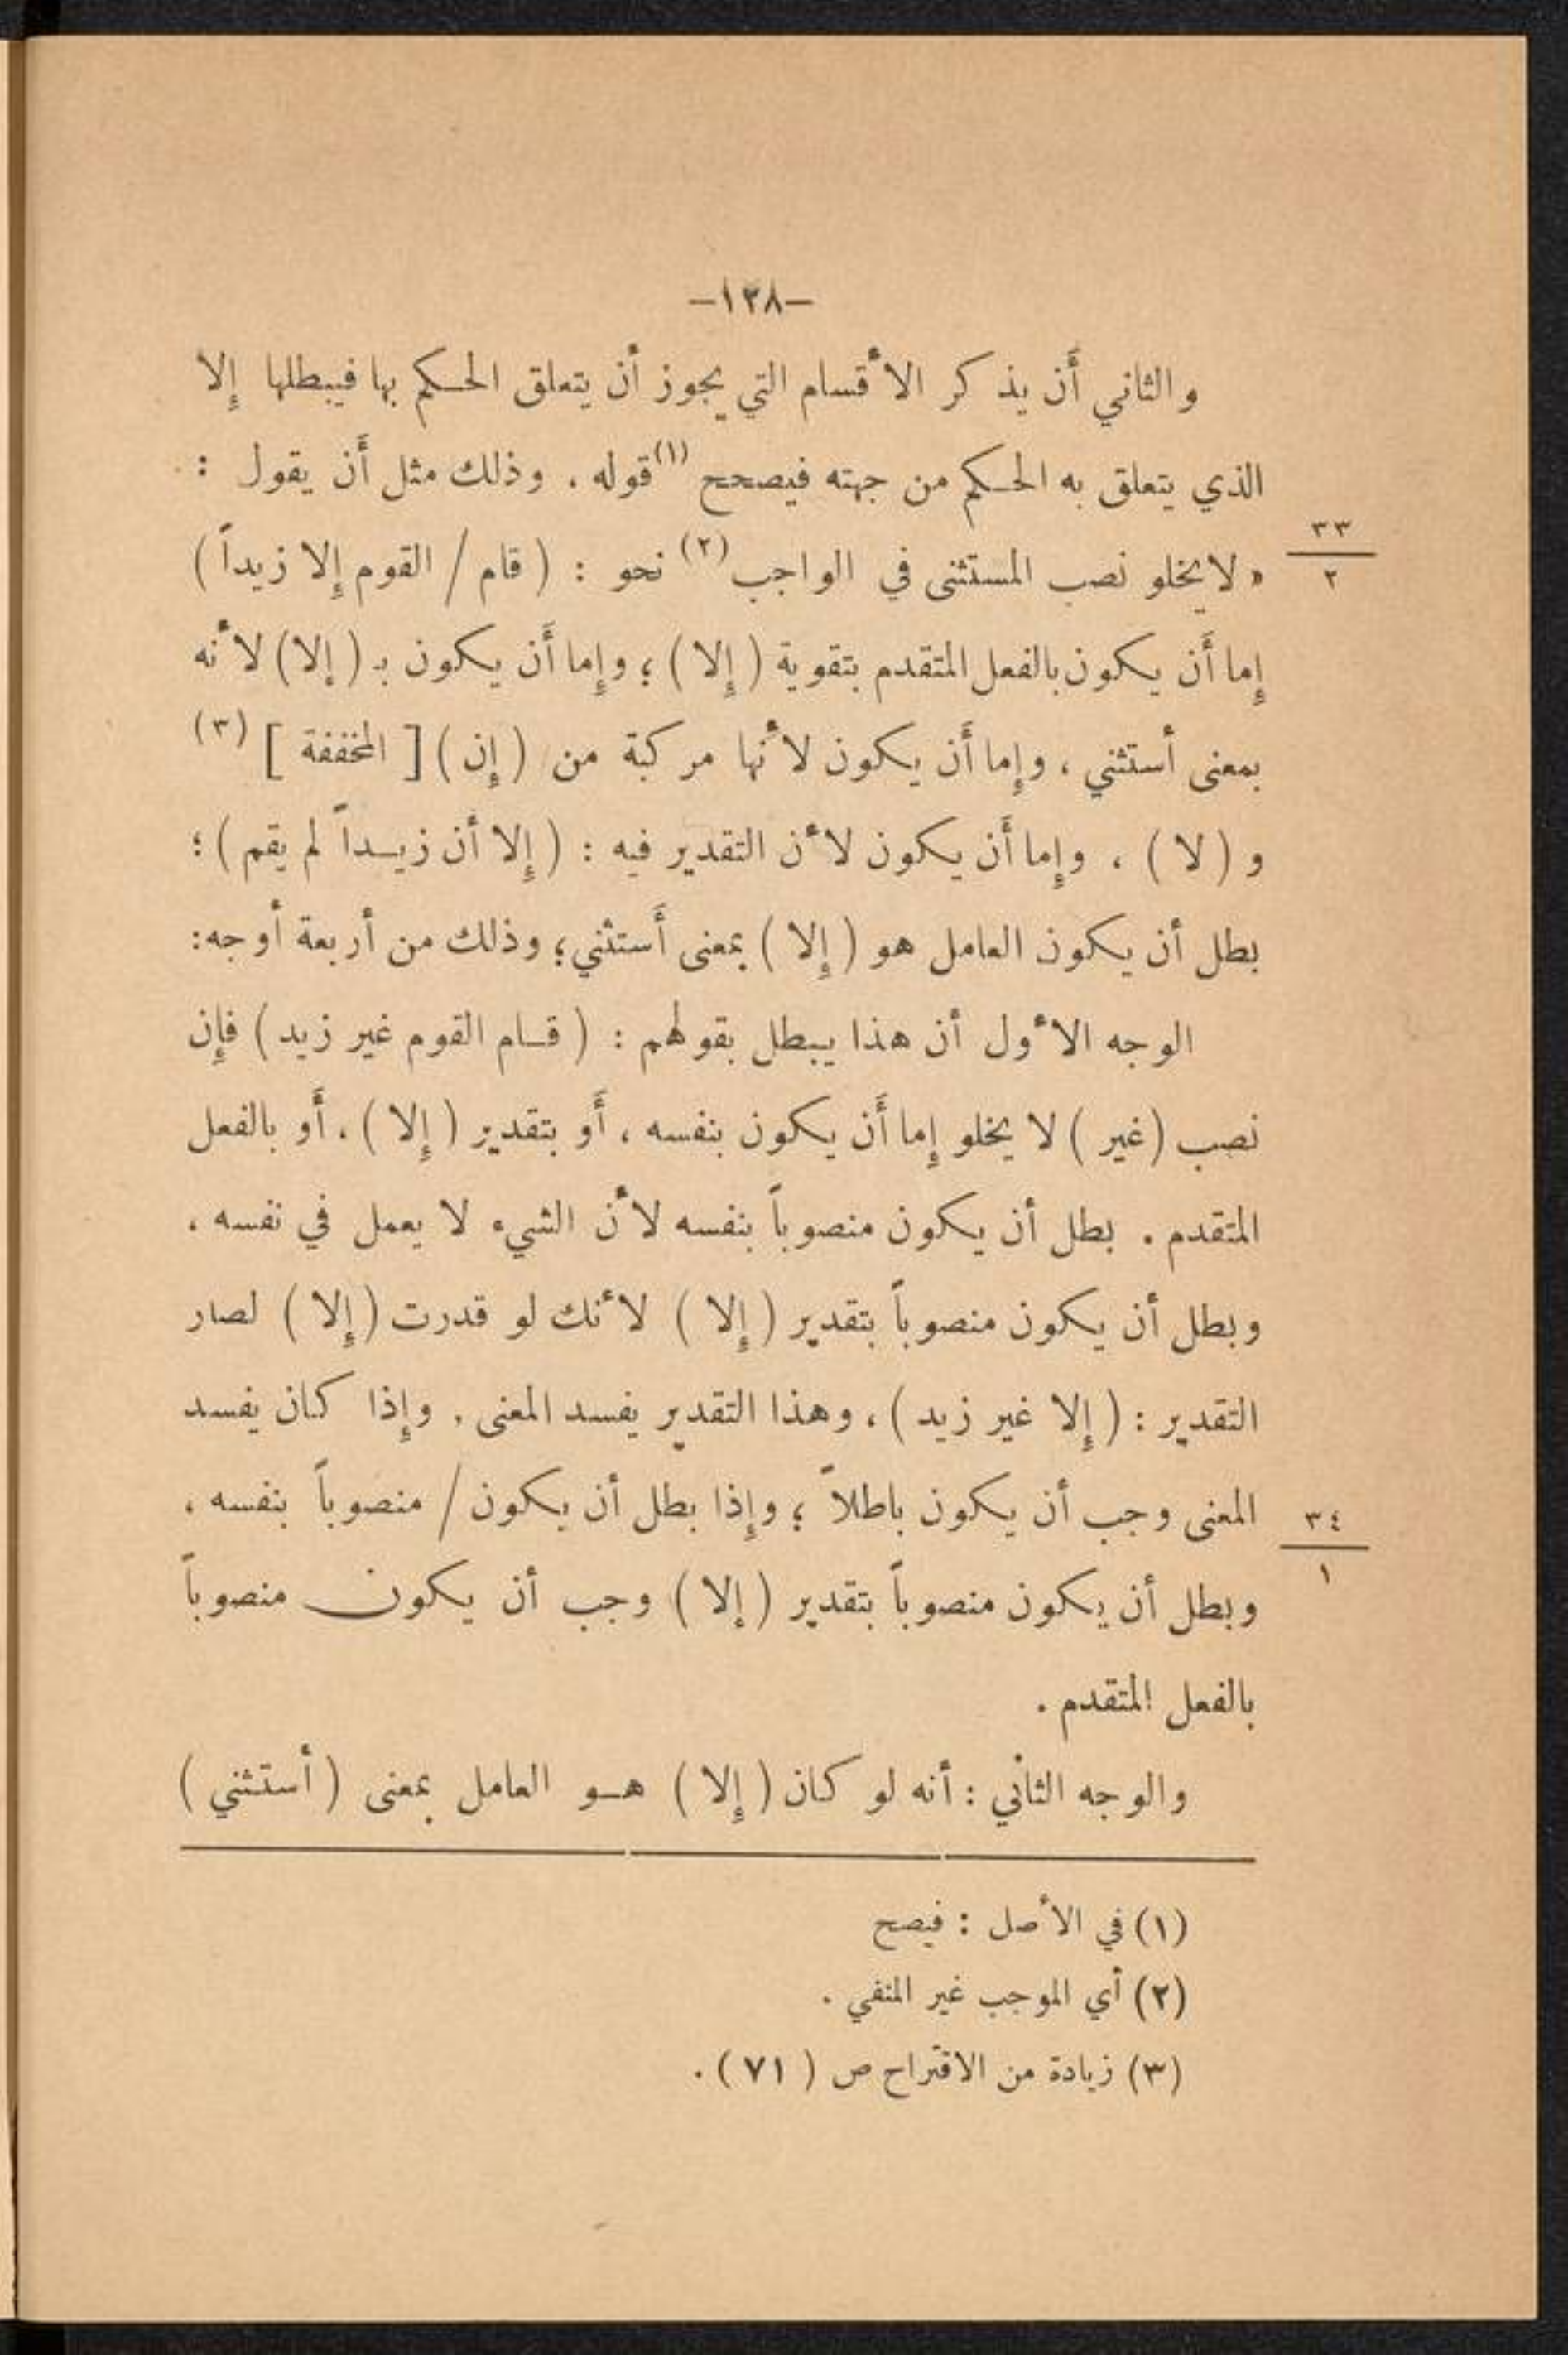 –١٢٨–
والثاني أَن يذكر الأقسام التي يجوز أن يتعلق الحكم بها فيبطلها إِلا
الذي يتعلق به الحكم من جهته فيصحح (١) قوله . وذلك مثل أَن يقول :
٣٣
٢
« لا يخلو نصب المستثنى في الواجب (٢) نحو : ( قام / القوم إِلا زيداً )
إِما أَن يكون بالفعل المتقدم بتقوية ( إِلا ) ؛ وإِما أَن يكون بـ ( إلا ) لأنه
بمعنى أستثني ، وإِما أَن يكون لأنها مركبة من ( إِن ) [ المخففة ] (٣)
و ( لا ) ، وإِما أَن يكون لأن التقدير فيه : ( إِلا أن زيداً لم يقم ) ؛
بطل أن يكون العامل هو ( إِلا ) بمعنى أَستثني ؛ وذلك من أربعة أوجه :
الوجه الأول أن هذا يبطل بقولهم : ( قام القوم غير زيد ) فإِن
نصب ( غير ) لا يخلو إِما أَن يكون بنفسه ، أَو بتقدير ( إِلا ) ، أَو بالفعل
المتقدم . بطل أن يكون منصوباً بنفسه لأن الشيء لا يعمل في نفسه ،
وبطل أن يكون منصوباً بتقدير ( إِلا ) لأنك لو قدرت ( إِلا ) لصار
التقدير : ( إِلا غير زيد ) ، وهذا التقدير يفسد المعنى . وإِذا كان يفسد
المعنى وجب أن يكون باطلاً ؛ وإِذا بطل أن يكون / منصوباً بنفسه ،
٣٤
١
وبطل أن يكون منصوباً بتقدير ( إلا ) وجب أن يكون منصوباً
بالفعل المتقدم .
والوجه الثاني : أنه لو كان ( إِلا ) هو العامل بمعنى ( أستثني )
(١) في الأصل : فيصح
(٢) أي الموجب غير المنفي .
(٣) زيادة من الاقتراح ص ( ٧١ ) .